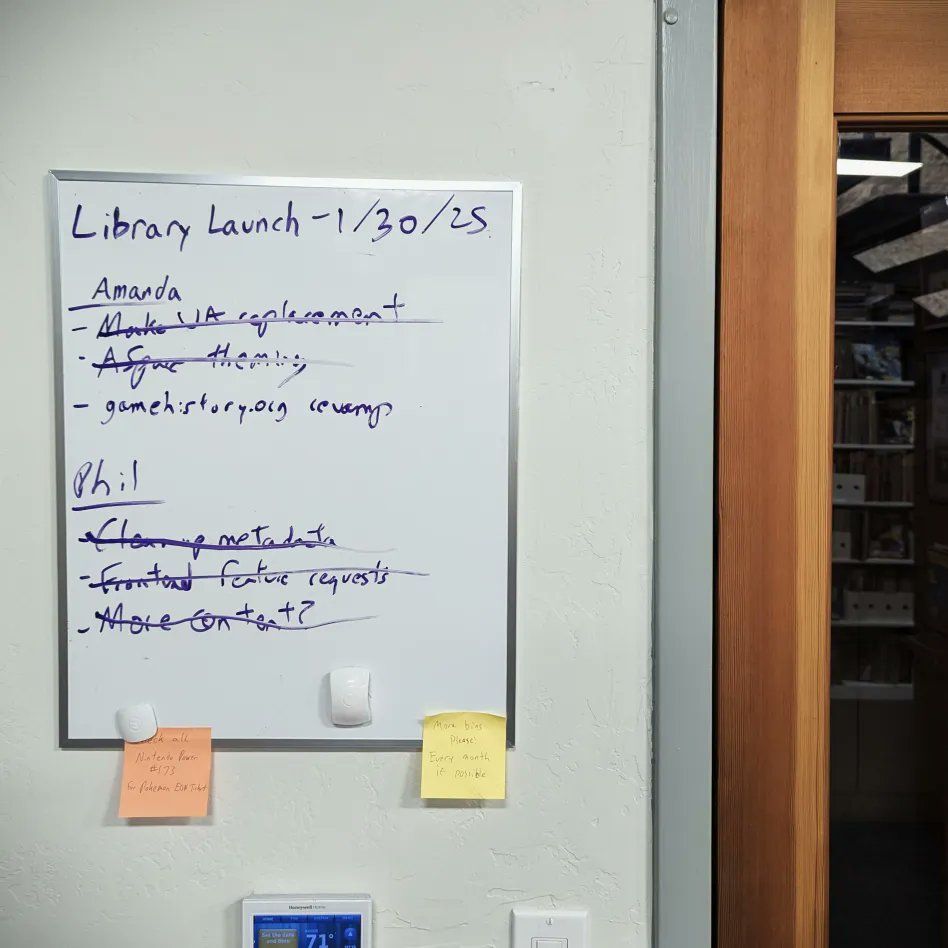 Library Launch - 1/30/25
Amanda
- Make UA replacement
- ASpace theming
- gamehistory.org revamp
Phil
- Cleanup metadata
- Frontend feature requests
- More content?
Check all
Nintendo Power
#173
For Pokemon EON Ticket
More bins
Please!
Every month
if possible
Honeywell Home
Set the date
and time
71°